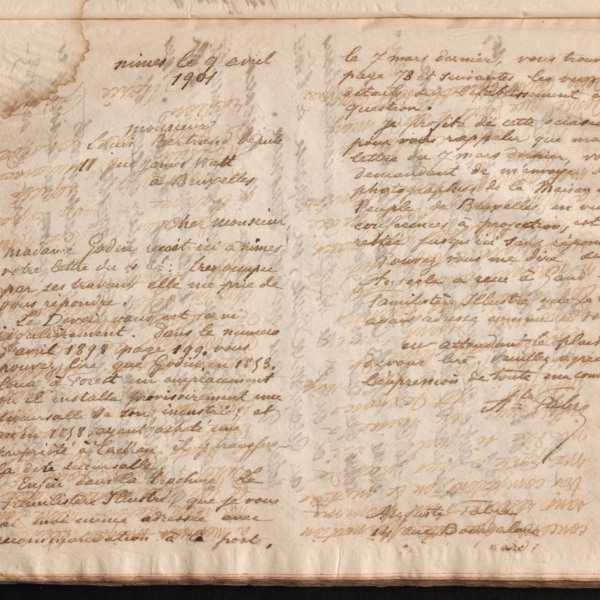 nimes le 9 avril
1901
Monsieur
Louis Bertrand député
11 rue James Watt
à Bruxelles
Cher monsieur,
Madame Godin reçoit ici à nimes
votre lettre du 4 ct. Très occupée
par ses travaux elle me prie de
vous répondre.
Le Devoir vous est servi
régulièrement. Dans le numéro
d'avril 1898 page 199, vous
pouvez lire que Godin en 1853
loua à Forest un emplacement
où il installa provisoirement une
succursale de son industrie, et
qu'en 1858, ayant acheté une
propriété à Laeken, il y transféra
la dite succursale.
Enfin dans la brochure Le
Familistère Illustré, que je vous
ai moi même adressée avec
recommandation à la poste,
le 7 mars dernier, vous trou
page 73 et suivantes les
détails sur l'établissement
question.
Je profite de cette occasion
pour vous rappeler que ma
lettre du 7 mars dernier, v
demandant de m'envoyer
photographies de la Maison
Peuple de Bruxelles, en vue
conférences à projection, est
restée jusqu'ici sans répon
Pouvez vous me dire si
Anseele a reçu à Gand
Familistère Illustré que je
avais adressé comme à vo
en attendant le plais
de vous lire, veuillez agrée
l'expression de toute ma con
Ate Fabre
Auguste Fabre
14 rue Bourdaloue